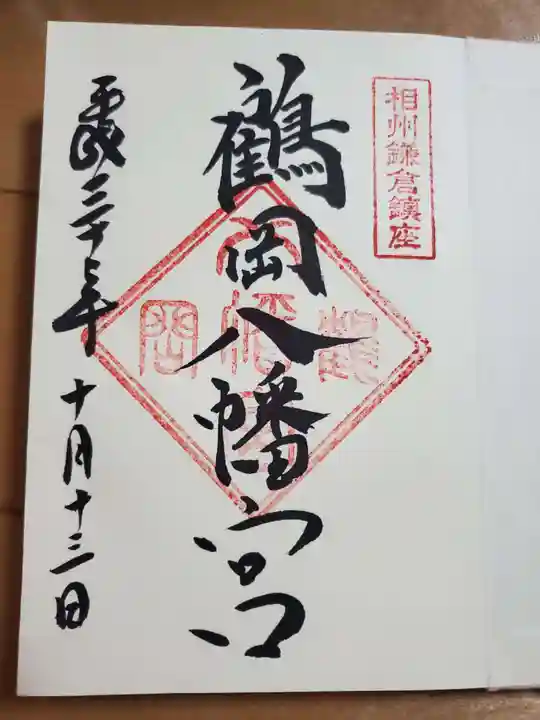 相州鎌倉鎮座
鶴岡八幡宮
平成三十年
十月十三日